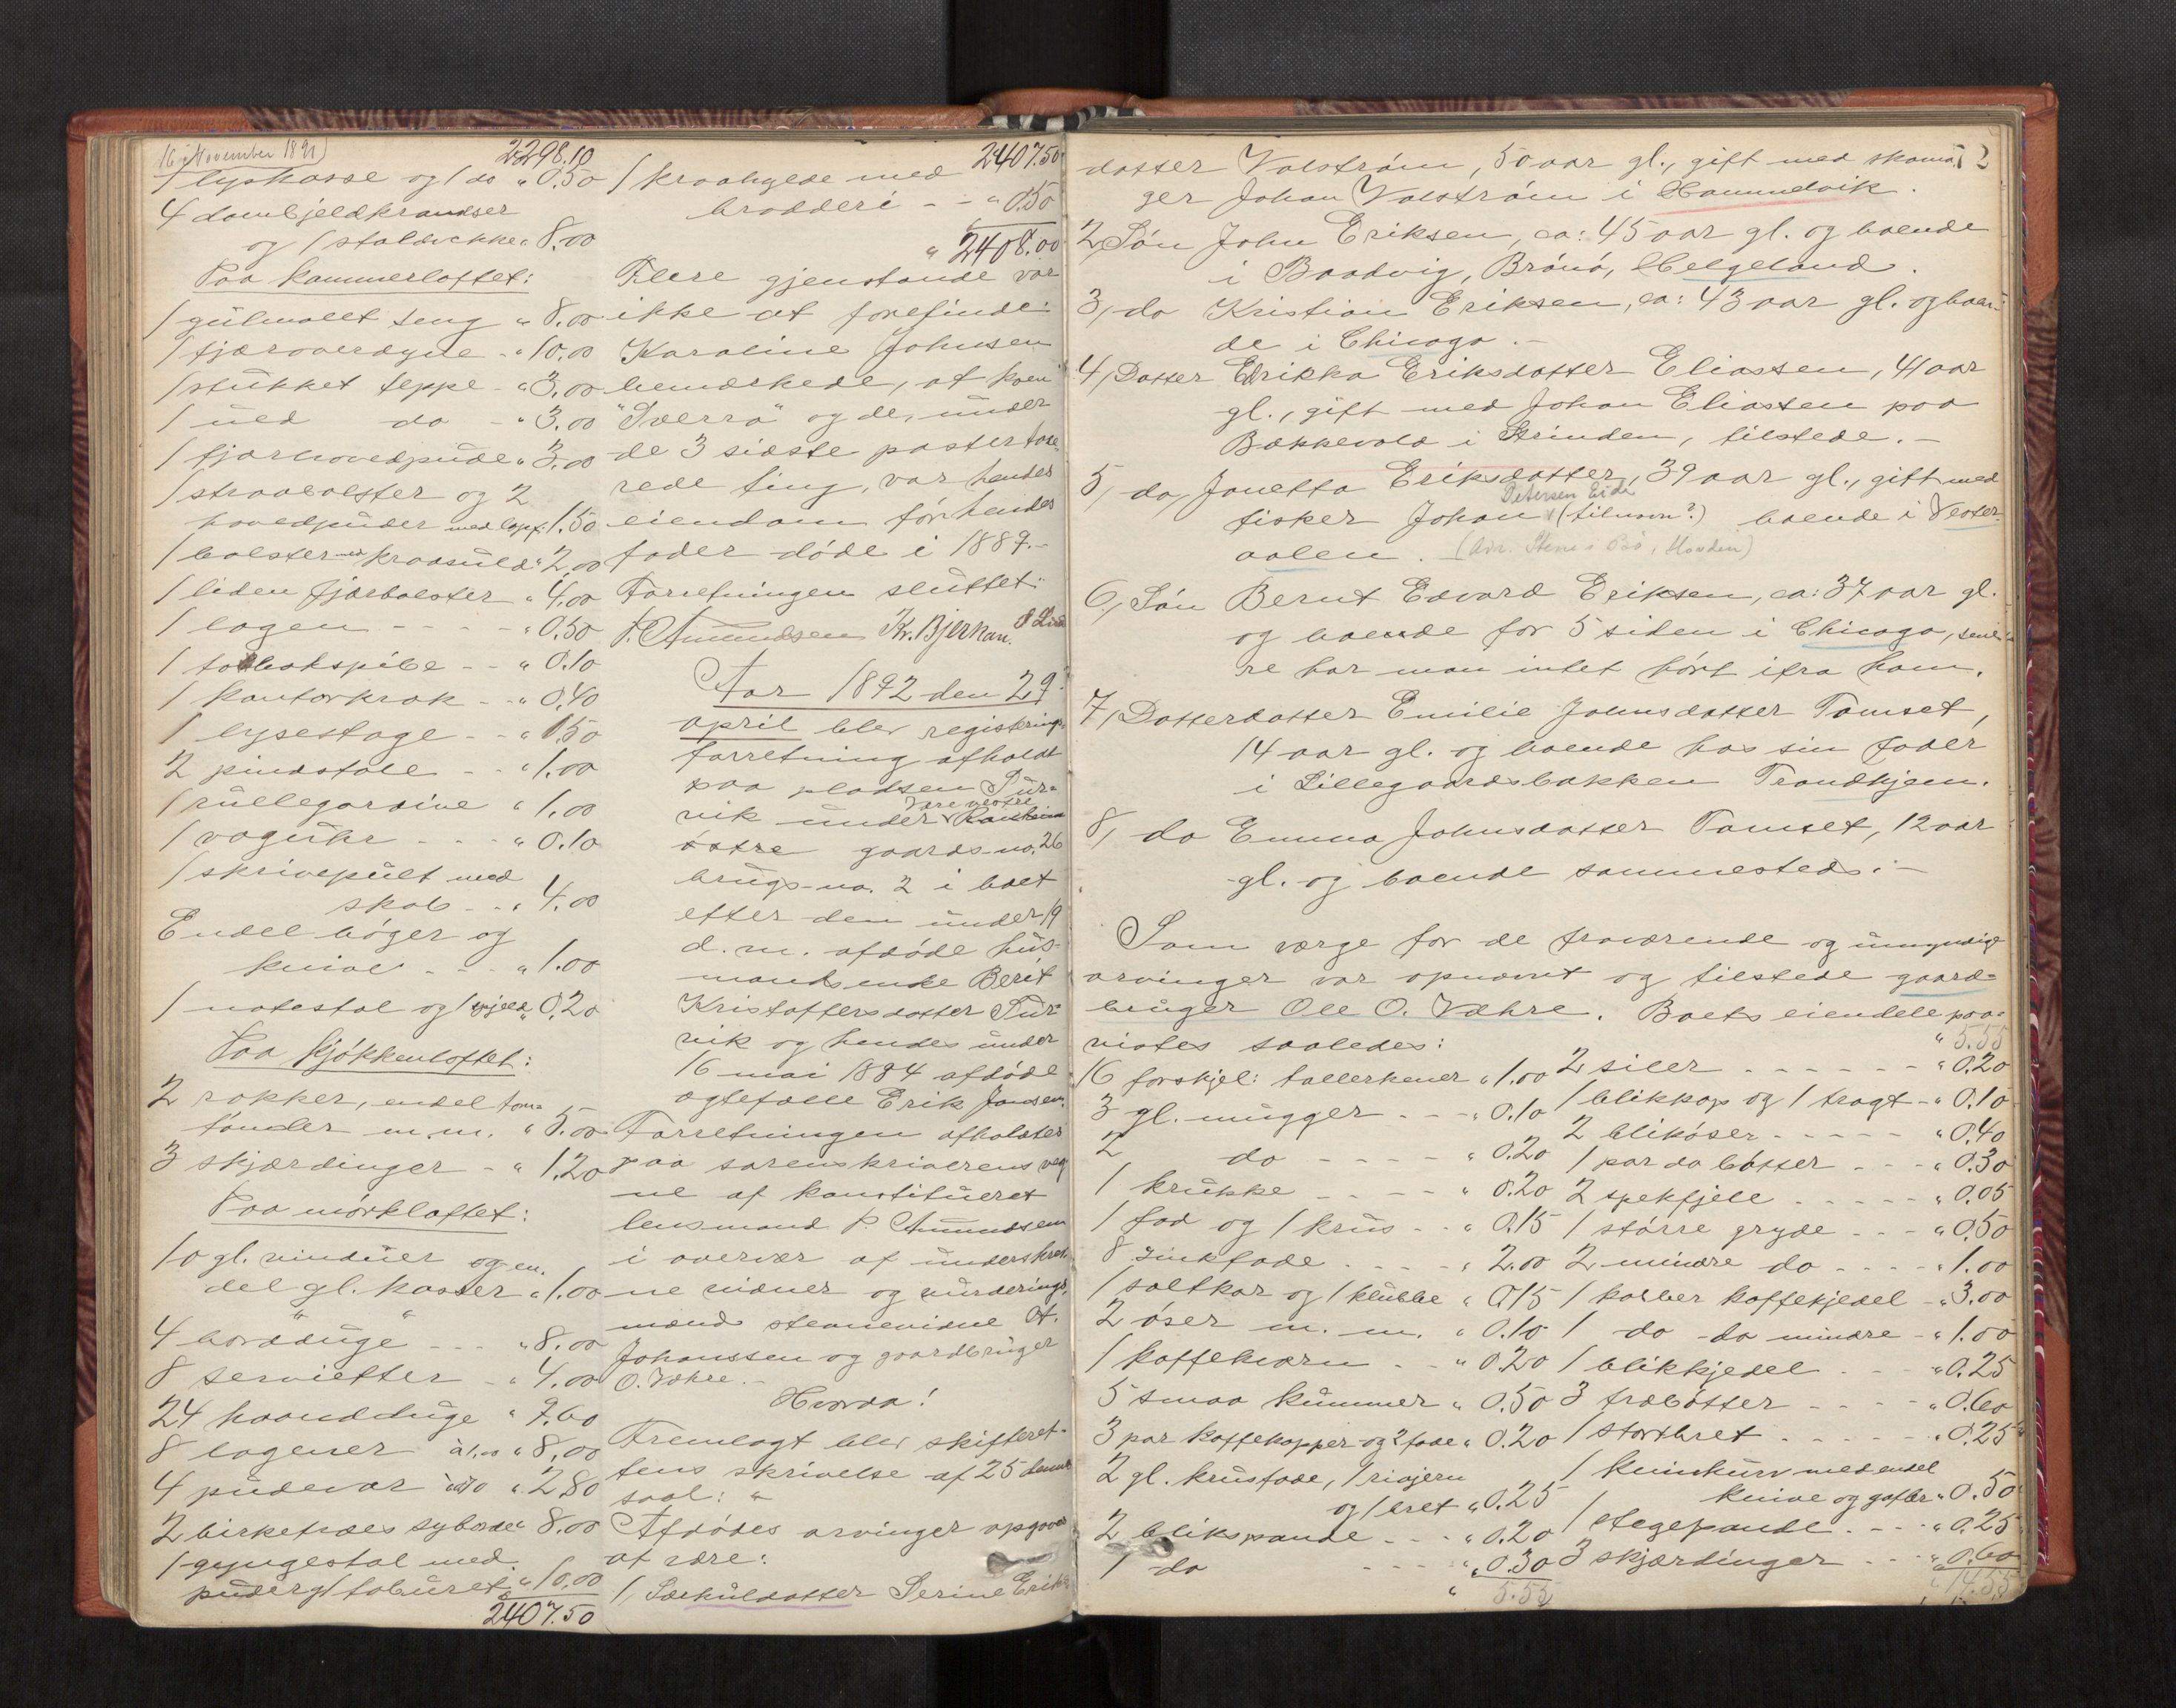 16 November 1891)
2298.10
1 lyskasse og 1 do " 0.50
4 dombjeldkrandser
og 1 staldlykke " 8.00
Paa kammerloftet:
1 gulmalet seng " 8.00
1 fjæroverdyne - " 10.00
1 stukket teppe - " 3.00
1 uld do - " 3.00
1 fjærhovedpude " 3.00
1 straabolster og 2
hovedpuder med lapp: 1.50
1 bolster med krøsuld " 2.00
1 liden fjærbolster " 4.00
1 lagen - - - - " 0.50
1 tobakspibe - - " 0.10
1 kontorkrak - - " 0.40
1 lysestage - - " 1.50
2 pindstole - - " 1.00
1 rullegardine " 1.00
1 vaguhr - - - " 0.10
1 skrivepult med
skab - - " 4.00
Endel bøger og
knive - - - " 1.00
1 natestol og 1 fjeld " 0.20
Paa kjøkkenloftet:
2 rokker, endel tom-
tønder m.m. " 5.00
3 skjærdinger - " 1.20
Paa mørkloftet:
10 gl. vinduer og en-
del gl. kasser " 1.00
4 borddúge - - - " 8.00
8 servietter - " 4.00
24 haanddúge " 9.60
8 lagener à 1.00 " 8.00
4 púdevar à 0.70 " 2.80
2 birketræs syborde " 8.00
1 gyngestol med
puder og 1 taburet " 10.00
2407.50
2407.50
1 kraahyede med
brodderi - - " 0.50
" 2408.00
Flere gjenstande var
ikke at forefinde.
Karoline Johnsen
bemærkede, at koen
"Sværra" og de, under
de 3 sidste poster kote-
rede ting, var hendes
eiendom før hendes
fader døde i 1889.-
Forretningen sluttet.
P. Amundsen Kr. Bjerkan.
Aar 1892 den 29
april blev registrerings-
forretning afholdt
paa pladsen Pur-
Være vestre
vik under Ranheim
østre gaards-no. 26
brúgs-no. 2 i boet
efter den under 19
d.m. afdøde hús-
mandsenke Berit
Kristoffersdatter Pur-
vik og hendes under
16 mai 1884 afdøde
ægtefælle Erik Jonsen.
Forretningen afholdtes
paa sorenskriverens veg-
ne af konstitueret
lensmand P. Amundsen
i overvær af underskrev-
ne vidner og vurderings-
mænd stevnevidne A.
Johanssen og gaardbrúger
O. Være.-
Hvorda!
Fremlagt blev skifteret-
tens skrivelse af 25 denne
saal: "
Afdødes arvinger opgaves
at være:
1, Særkuldatter Serine Eriks-
datter Valstrøm, 50 aar gl., gift med skoma-
ger Johan Valstrøm i Hammervik.
2 Søn John Eriksen, ca: 45 aar gl. og boende
i Baadvig, Brønø, Helgeland.
3, do Kristian Eriksen, ca: 43 aar gl. og boen-
de i Chicago.-
4, Datter Edrikka Eriksdatter Eliassen, 41 aar
gl., gift med Johan Eliassen paa
Bækkevold i Strinden, tilstede.-
5, do, Janetta Eriksdatter, 39 aar gl., gift med
Petersen Eide
fisker Johan (tilnavn?) boende i Vester-
aalen. (Adr. Stene i Bø, Hovden)
6, Søn Bernt Edvard Eriksen, ca: 37 aar gl.
og boende for 5 siden i Chicago, sene-
re har man intet hørt ifra ham.
7, Datterdatter Emilie Johnsdatter Tomset,
14 aar gl. og boende hos sin fader
i Lillegaardsbakken Trondhjem.
8, do Emma Johnsdatter Tomset, 12 aar
gl. og boende sammesteds.-
Som værge for de fraværende og umyndige
arvinger var opnævnt og tilstede gaard-
brúger Ole O. Være. Boets eiendele paa-
vistes saaledes:
16 forskjel: tallerkener " 1.00
3 gl. mugger - - - " 0.10
2 do - - - - " 0.20
1 krukke - - - - " 0.20
1 fad og 1 krús - - " 0.15
8 zinkfade - - - - " 2.00
1 saltkar og 1 klubbe " 0.15
2 øser m.m. " 0.10
1 kaffekværn - - " 0.20
5 smaa kummer " 0.50
3 par kaffekopper og 2 fade " 0.20
2 gl. krusfade, 1 rivjern
og 1 bret " 0.25
2 blikspande - - - " 0.20
1 do - - - - " 0.30
" 5.55
" 5.55
2 siler - - - - - - " 0.20
1 blikkop og 1 tragt - " 0.10
2 blikøser - - - - - " 0.40
1 par do bøtter - - - " 0.30
2 spekfjele - - - - - " 0.05
1 større gryde - - - " 0.50
2 mindre do - - - - " 1.00
1 kobber kaffekjedel - " 3.00
1 do do mindre - " 1.00
1 blikkjedel - - " 0.25
3 træbøtter - - - - " 0.60
1 stortbret - - - - - " 0.25
1 knivkurv med endel
knive og gafler " 0.50
1 stegepande - - - - " 0.25
3 skjærdinger - - - " 0.60
" 14.55